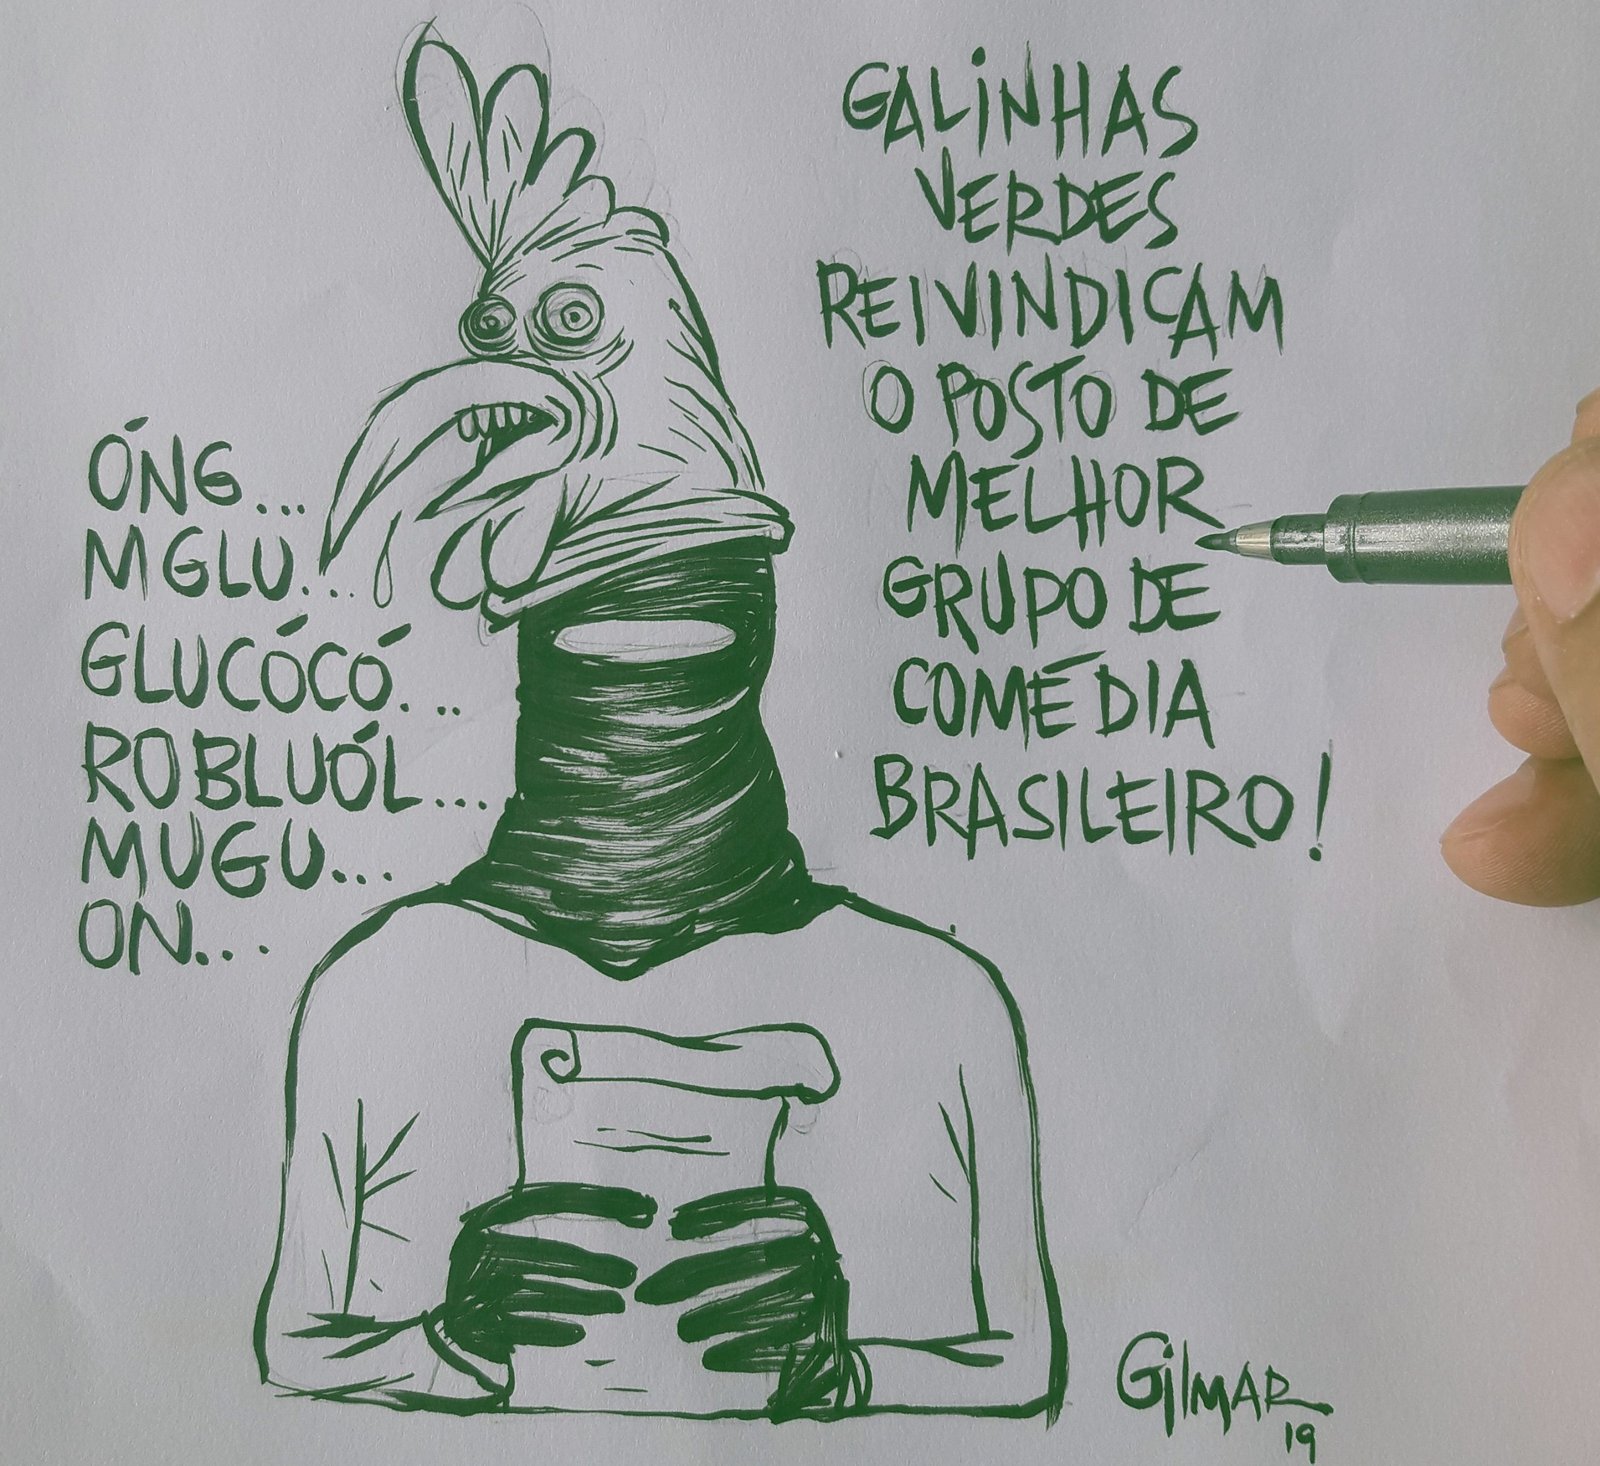 GALINHAS
VERDES
REIVINDICAM
O POSTO DE
MELHOR
GRUPO DE
COMÉDIA
BRASILEIRO!
ÓNG...
MGLU...
GLUCÓCÓ...
ROBLUÓL...
MUGU...
ON...
GILMAR
19